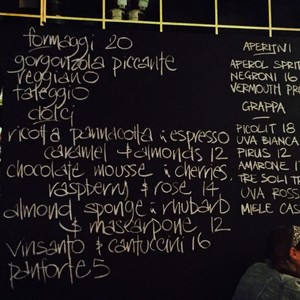 formaggi 20
gorgonzola piccante
reggiano
taleggio
dolci
ricotta pannacotta i espresso
caramel & almonds 12
chocolate mousse i cherries,
raspberry & rose 14,
almond sponge i rhubarb
& mascarpone 12
vinsanto & cantuccini 16
panforte 5
APERITIVI
APEROL SPRIT
NEGRONI 16
VERMOUTH PRO
GRAPPA
PICOLIT 18
UVA BIANCA
PIRUS 12
AMARONE 1
TRE SOLI TR
UVA ROSS
MIELE CAS